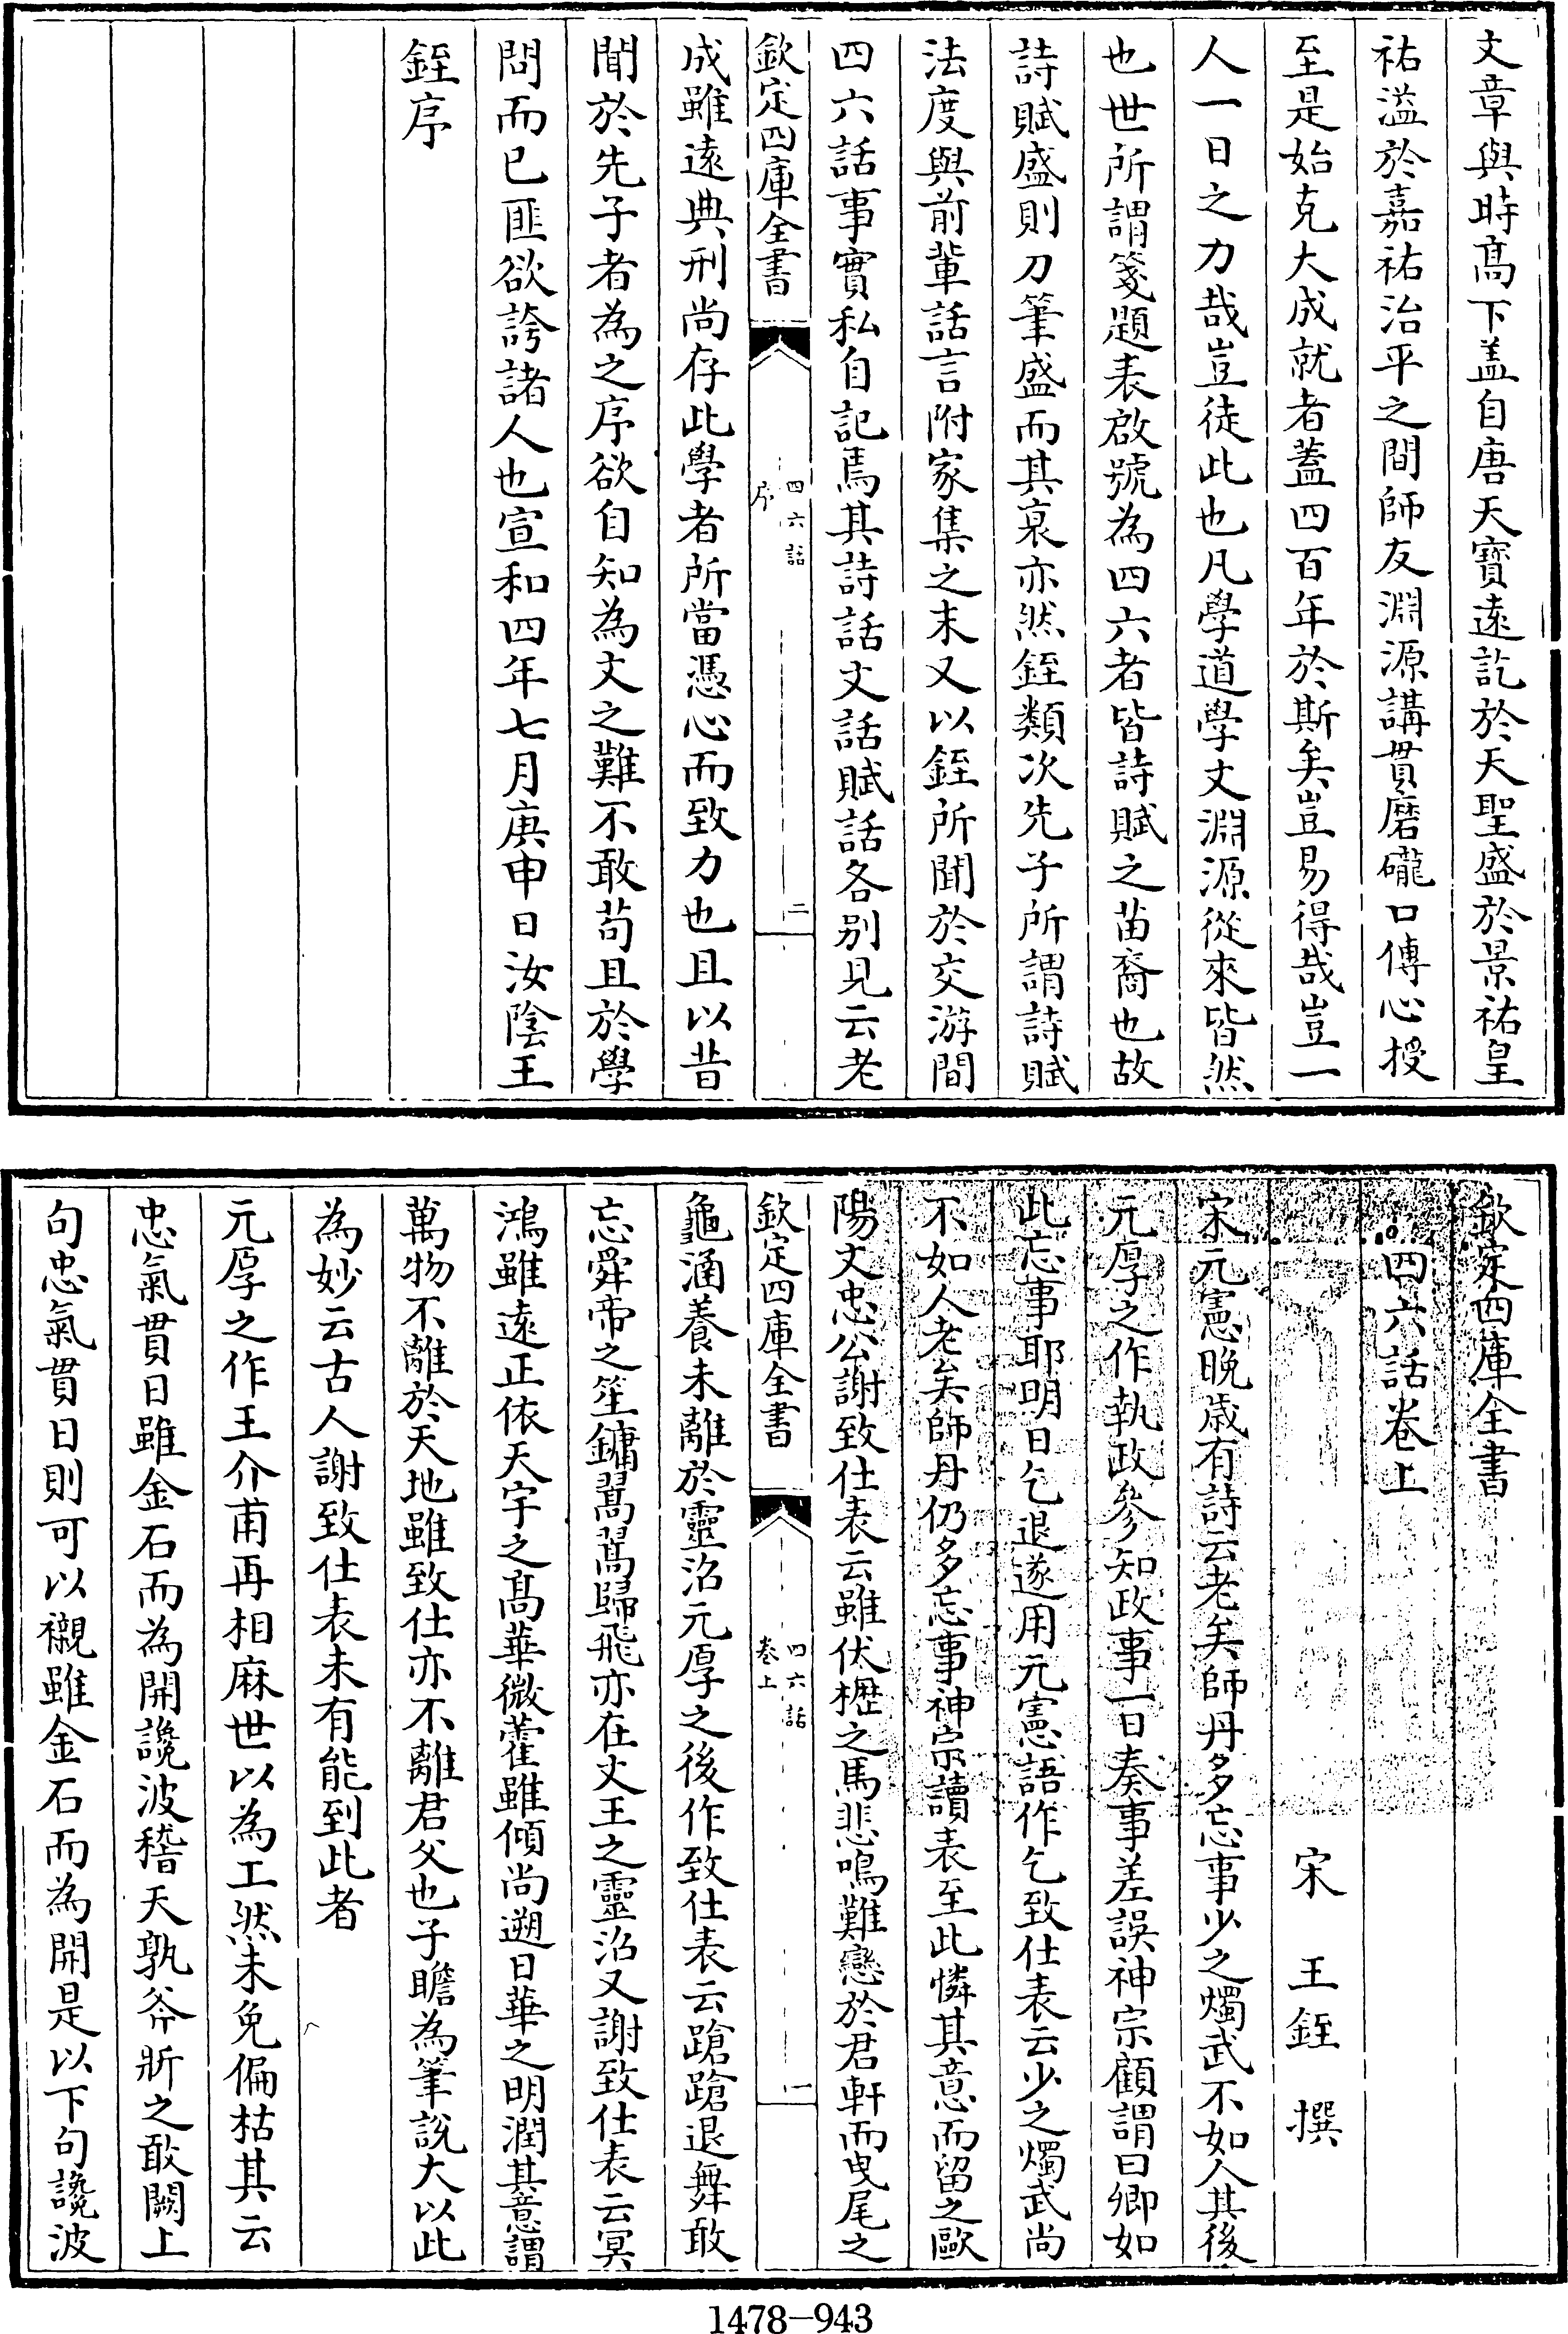 文章與時髙下盖自唐天寳逺訖於天聖盛於景祐皇
祐溢於嘉祐治平之間師友淵源講貫磨礲口傳心授
至是始克大成就者蓋四百年於斯矣豈易得哉豈一
人一日之力哉豈徒此也凡學道學文淵源從來皆然
也世所謂箋題表啟號為四六者皆詩賦之苗裔也故
詩賦盛則刀筆盛而其衰亦然銍類次先子所謂詩賦
法度與前輩話言附家集之末又以銍所聞於交游間
四六話事實私自記焉其詩話文話賦話各别見云老
欽定四庫全書
四六話
序
二
成雖逺典刑尚存此學者所當憑心而致力也且以昔
聞於先子者為之序欲自知為文之難不敢苟且於學
問而已匪欲誇諸人也宣和四年七月庚申日汝隂王
銍序
欽定四庫全書
四六話卷上
宋 王銍 撰
宋元憲晚歳有詩云老矣師丹多忘事少之燭武不如人其後
元厚之作執政參知政事一日奏事差誤神宗顧謂曰卿如
此忘事耶明日乞退遂用元憲語作乞致仕表云少之燭武尚
不如人老矣師丹仍多忘事神宗讀表至此憐其意而留之歐
陽文忠公謝致仕表云雖伏櫪之馬悲鳴難戀於君軒而曳尾之
欽定四庫全書
四六話
卷上
一
龜涵養未離於靈沼元厚之後作致仕表云蹌蹌退舞敢
忘舜帝之笙鏞翯翯歸飛亦在文王之靈沼又謝致仕表云冥
鴻雖逺正依天宇之髙華微藿雖傾尚遡日華之明潤其意謂
萬物不離於天地雖致仕亦不離君父也子瞻為筆說大以此
為妙云古人謝致仕表未有能到此者
元厚之作王介甫再相麻世以為工然未免偏枯其云
忠氣貫日雖金石而為開讒波稽天孰斧斨之敢闕上
句忠氣貫日則可以襯雖金石而為開是以下句讒波
1478-943